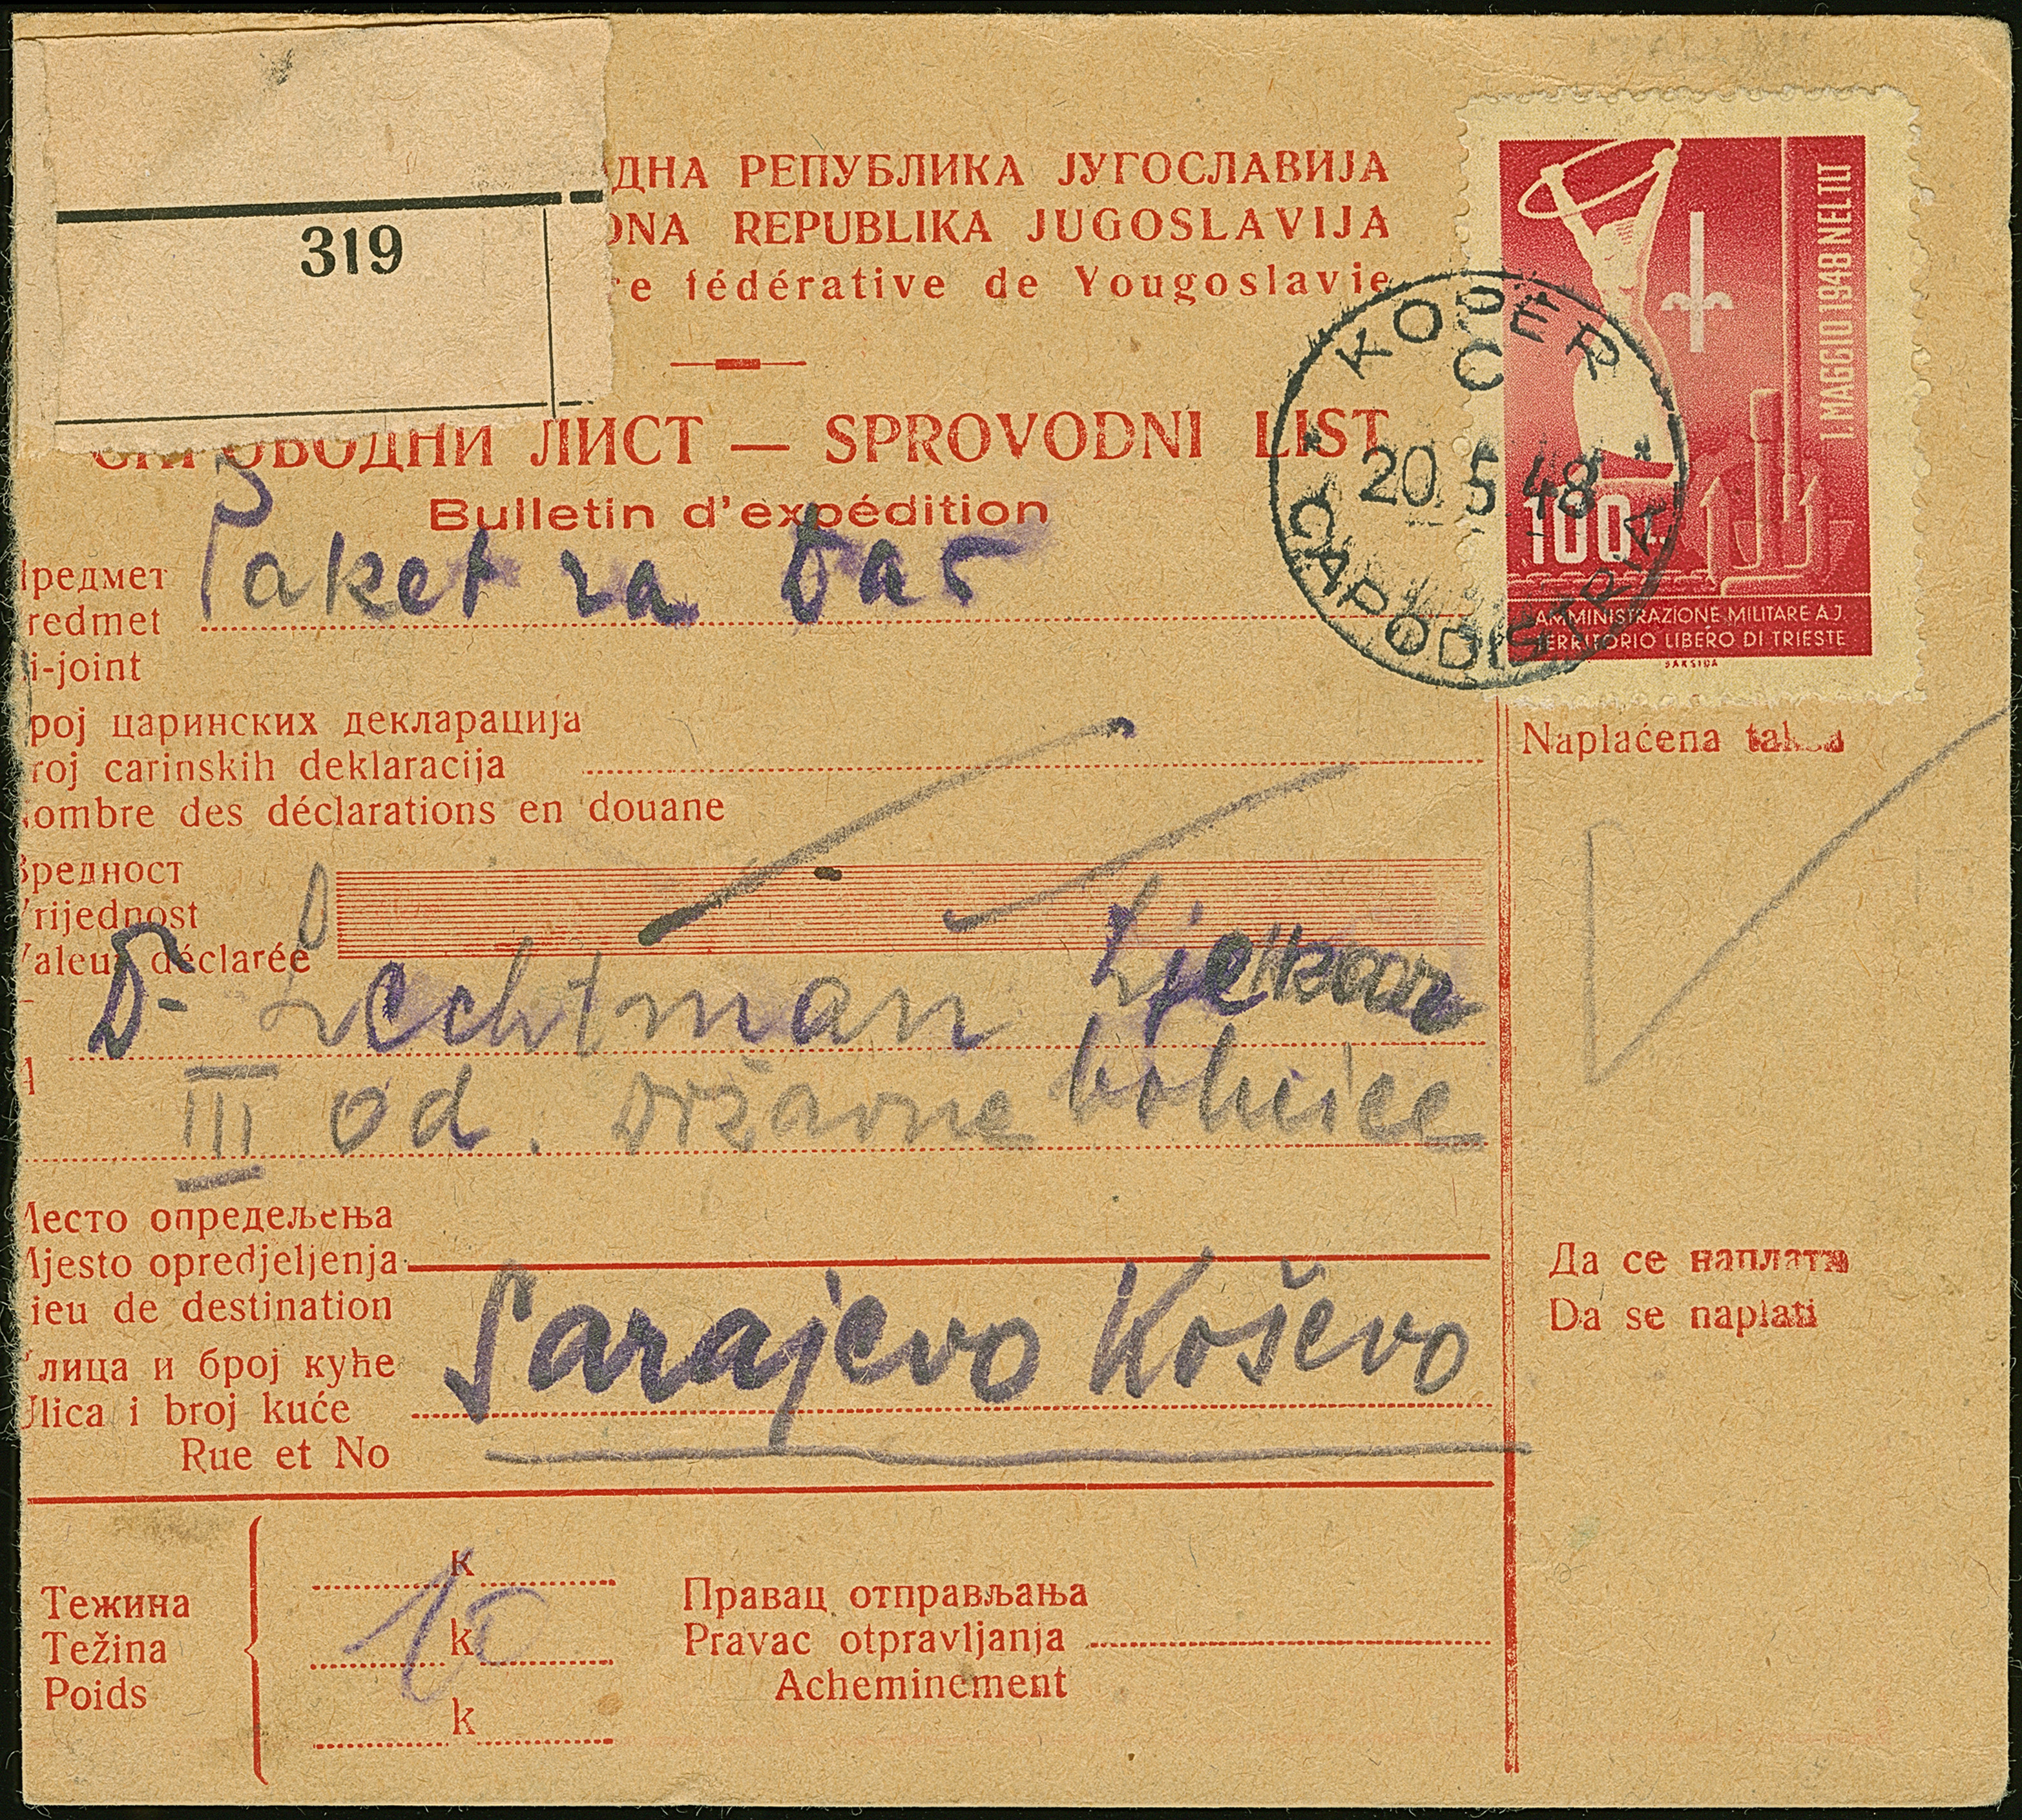 319
ДНА РЕПУБЛИКА ЈУГОСЛАВИЈА
ONA REPUBLIKA JUGOSLAVIJA
re fédérative de Yougoslavie
ОВОДНИ ЛИСТ — SPROVODNI LIST
Bulletin d'expédition
1 MAGGIO 1948 NEL TLT
100
AMMINISTRAZIONE MILITARE A.J.
TERRITORIO LIBERO DI TRIESTE
SAKSIDA
KOPER
C
20.5.48
CAPODISTRIA
редмет
redmet
i-joint
Paket za
рој царинских декларација
roj carinskih deklaracija
ombre des déclarations en douane
Naplaćena taksa
редност
rijednost
aleur déclarée
Dr Lechtman Ljekar
A
III od. Državne bolnice
Место опредељења
Mjesto opredjeljenja
ieu de destination
Sarajevo Koševo
лица и број куће
lica i broj kuće
Rue et No
Да се наплати
Da se naplati
Тежина
Težina
Poids
k
k
k
10
Правац отправљања
Pravac otpravljanja
Acheminement